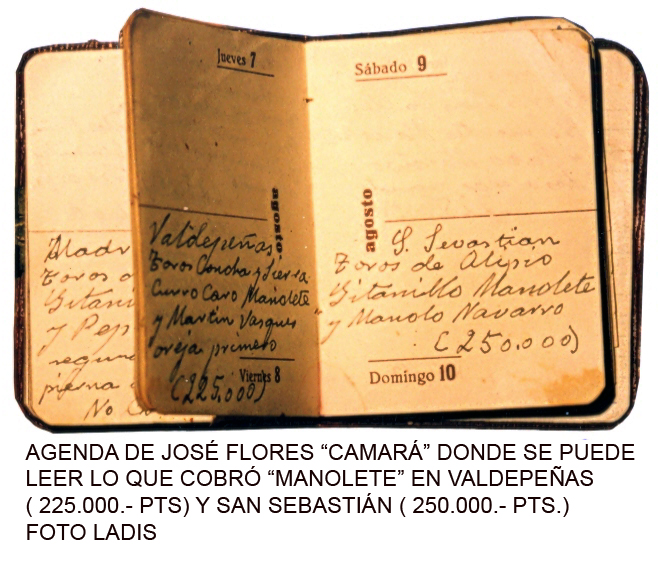 Jueves 7
agosto
Valdepeñas
Toros Concha y Sierra
Curro Caro Manolete
y Martin Vasques
oreja primero
Viernes 8
(225.000)
Sábado 9
agosto
S. Sevastian
Toros de Alipio
Gitanillo Manolete
y Manolo Navarro
(250.000)
Domingo 10
Madr
Toros
Gitani
y Pep
segun
pierna
No
AGENDA DE JOSÉ FLORES “CAMARÁ” DONDE SE PUEDE
LEER LO QUE COBRÓ “MANOLETE” EN VALDEPEÑAS
( 225.000.- PTS) Y SAN SEBASTIÁN ( 250.000.- PTS.)
FOTO LADIS